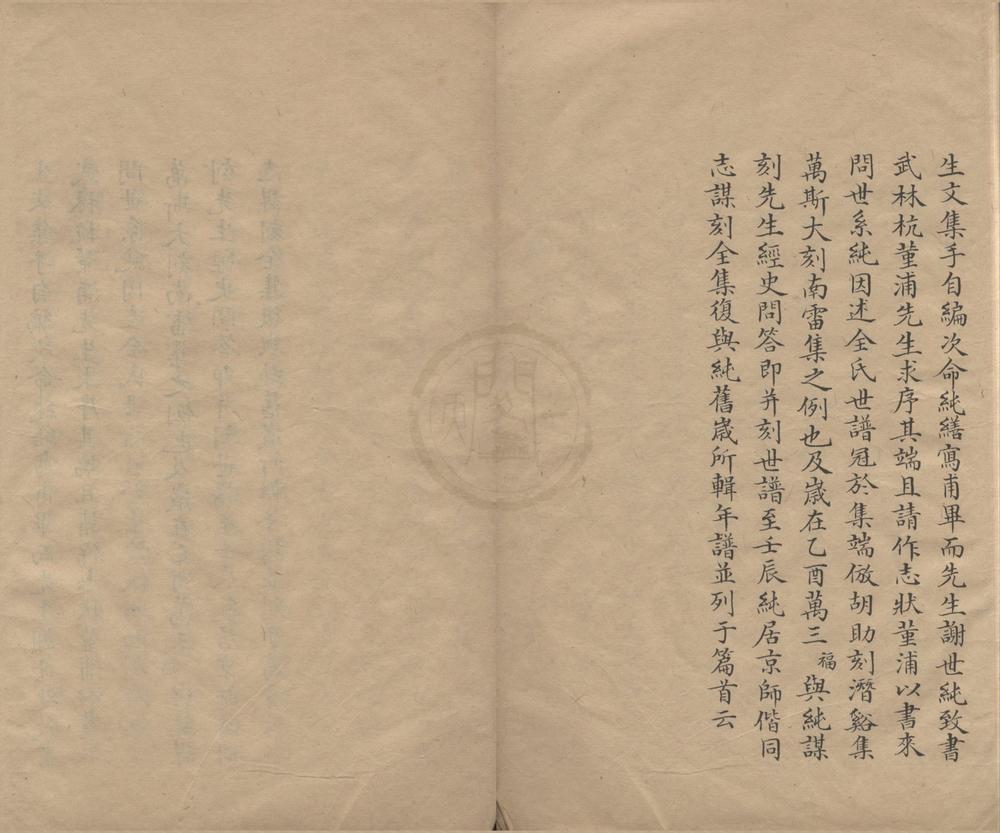 生文集手自編次命純繕寫甫畢而先生謝世純致書
武林杭菫浦先生求序其端且請作志狀菫浦以書來
問世系純因述全氏世譜冠於集端倣胡助刻潛谿集
萬斯大刻南雷集之例也及歲在乙酉萬三福與純謀
刻先生經史問答即并刻世譜至壬辰純居京師偕同
志謀刻全集復與純舊歲所輯年譜並列于篇首云